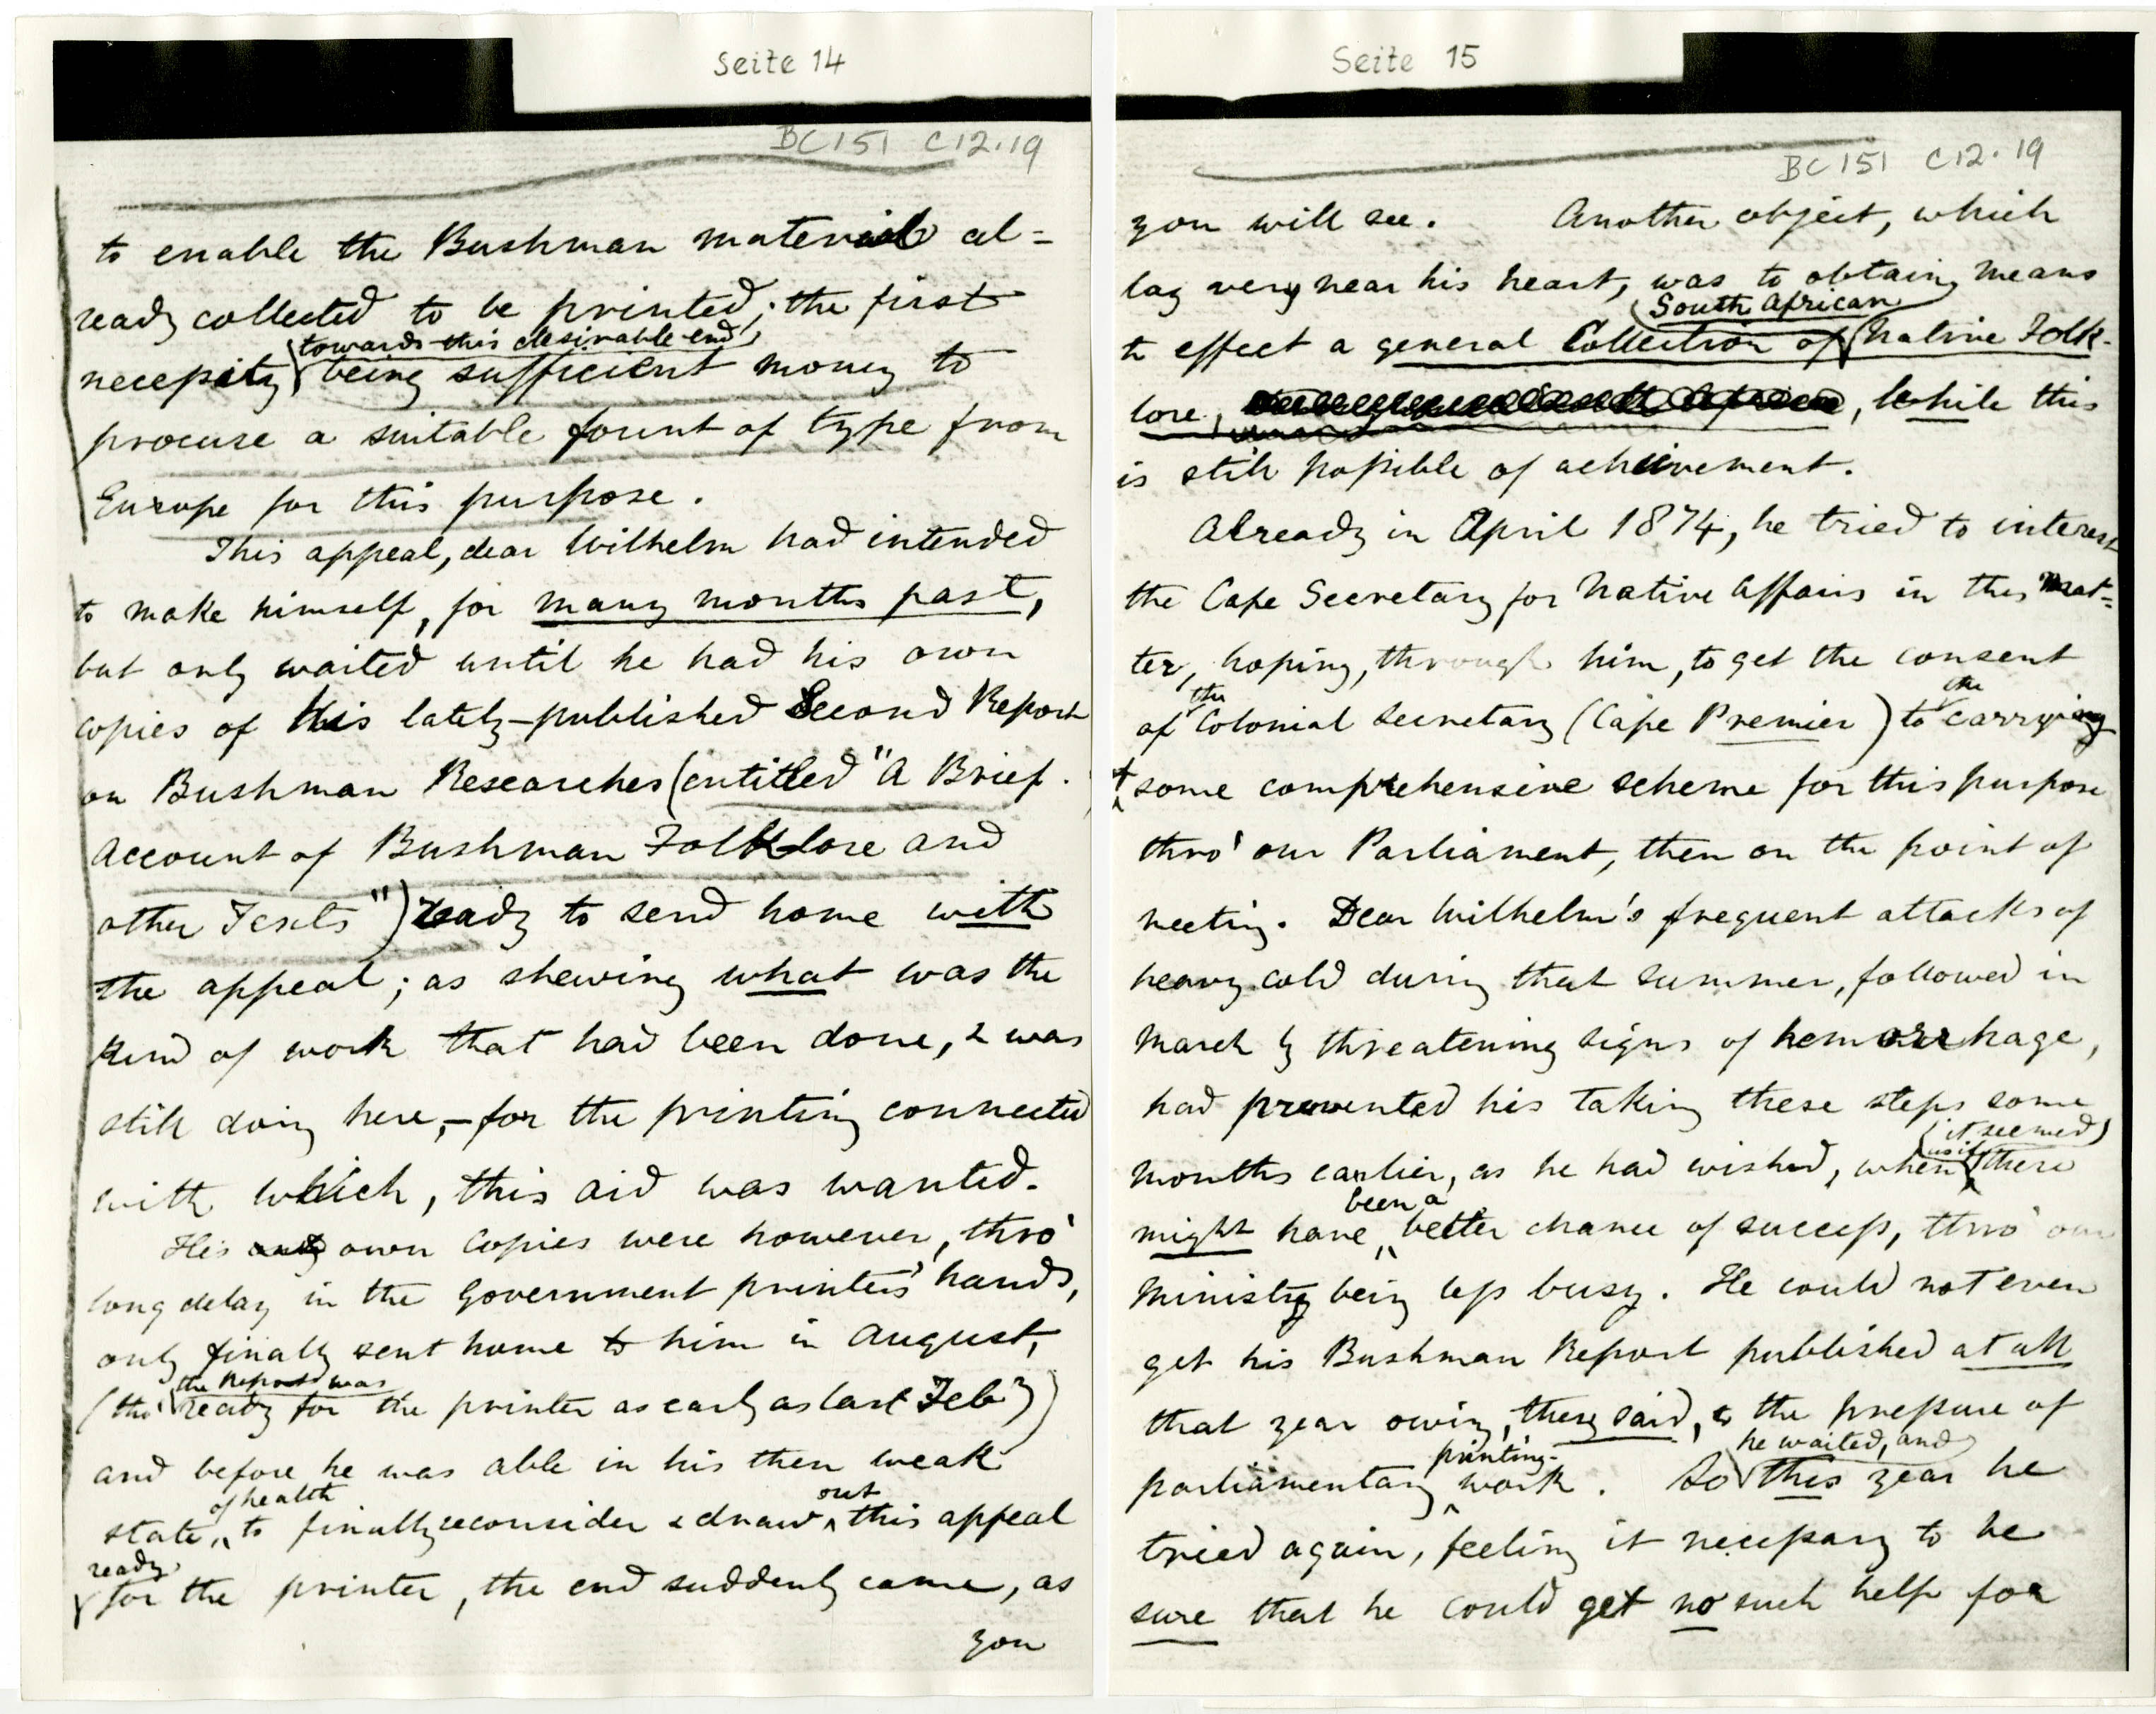 Seite 14
BC 151 C12.19
to enable the Bushman material al=
ready collected to be printed; the first
towards this desirable end,
necessity being sufficient money to
procure a suitable fount of type from
Europe for this purpose.
This appeal, dear Wilhelm had intended
to make himself, for many months past,
but only waited until he had his own
copies of his lately-published Second Report
on Bushman Researches (entitled "A Brief
Account of Bushman Folklore and
other Texts") ready to send home with
the appeal; as shewing what was the
kind of work that had been done, & was
still doing here,- for the printing connected
with which, this aid was wanted.
His own copies were however, thro'
long delay in the Government printers' hands,
only finally sent home to him in August,
the Report was
(tho' ready for the printer as early as last Feby)
and before he was able in his then weak
of health out
state, to finally reconsider & draw this appeal
ready
for the printer, the end suddenly came, as
you
Seite 15
BC 151 C12.19
you will see. Another object, which
lay very near his heart, was to obtain means
South African
to effect a general Collection of Native Folk-
lore, , while this
is still possible of achievement.
Already in April 1874, he tried to interest
the Cape Secretary for Native Affairs in this mat=
ter, hoping, through him, to get the consent
the the
of Colonial Secretary (Cape Premier) to carrying
some comprehensive scheme for this purpose
thro' our Parliament, then on the point of
meeting. Dear Wilhelm's frequent attacks of
heavy cold during that summer, followed in
March by threatening signs of hemorrhage,
had prevented his taking these steps some
(it seemed)
as if
months earlier, as he had wished, when there
been a
might have better chance of success, thro' our
Ministry being less busy. He could not even
get his Bushman Report published at all
that year owing, they said, to the pressure of
printing- he waited, and
parliamentary work. So this year he
tried again, feeling it necessary to be
sure that he could get no such help for